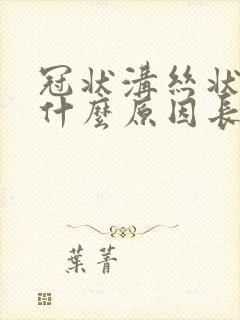 冠状溝絲状
什麼原因長
葉菁